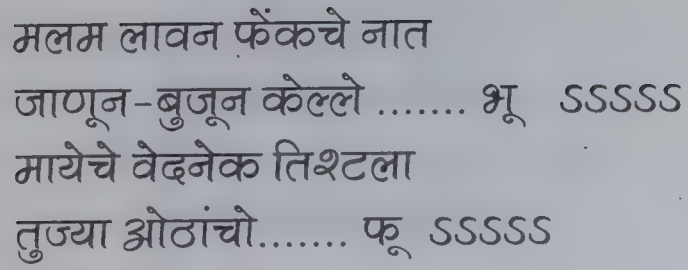 मलम लावन फेंकचे नात
जाणून-बुजून केल्ले ....... भू ऽऽऽऽऽ
मायेचे वेदनेक तिश्टला
तुज्या ओठांचो....... फू ऽऽऽऽऽ